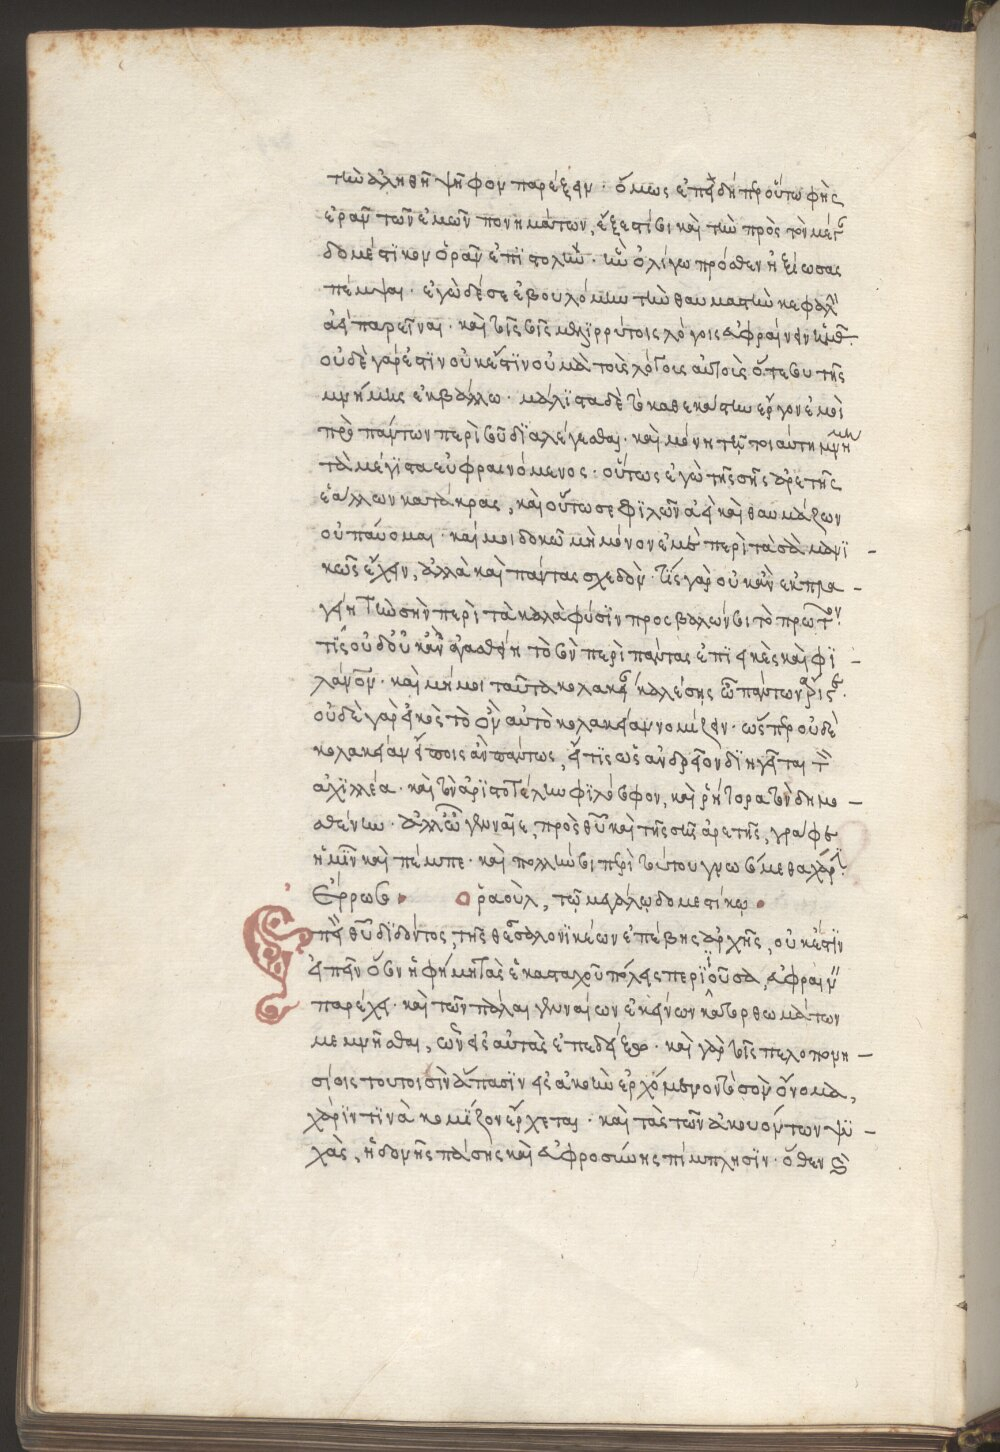 τὴν ἀληθῆ ψῆφον παρέξειν· ὅμως ἐπειδήπερ οὕτω φὴς
ἐρᾶν τῶν ἐμῶν πονημάτων, ἔξεστί σοι καὶ τὴν πρὸς τὸν μέγαν
δομέστικον ὁρᾶν ἐπιστολὴν· ἣν ὀλίγω πρόσθεν ἠξίωσας
πέμψαι· ἐγὼ δέ σε ἐβουλόμην τὴν θαυμαστὴν κεφαλὴν
ἀεὶ παρεῖναι· καὶ τοῖς σοῖς μελιρρύτοις λόγοις εὐφραίνειν ἡμᾶς·
οὐδὲ γάρ ἐστιν οὐκ ἔστιν οὐ μὰ τοὺς λόγους αὐτοὺς ὅτε σου τῆς
μνήμης ἐκβάλλω· μάλιστα δὲ τὸ καθεκάστην ἔργον ἐμοὶ
πρὸ πάντων περὶ σοῦ διαλέγεσθαι· καὶ μόνη τῇ τοιαύτη μνήμη
τὰ μέγιστα εὐφραινόμενος· οὕτως ἐγὼ τῆς σῆς ἀρετῆς
ἑάλλων κατάκρας, καὶ οὕτω σε φιλῶν ἀεὶ καὶ θαυμάζων
οὐ παύομαι· καί μοι δοκῶ μὴ μόνον ἐμὲ περὶ τὰ σὰ μανι –
κῶς ἔχειν, ἀλλὰ καὶ πάντας σχεδόν· τίς γὰρ οὐκ ἂν ἐκπλα –
γείη τὴν σὴν περὶ τὰ καλὰ φύσιν προσβαλών σοι τὸ πρῶτον·
τίς οὐδ' οὐκ ἂν ἀγασθείη τὸ σὸν περὶ πάντας ἐπιεικὲς καὶ φι –
λάνθρωπον· καὶ μή μοι ταῦτα κολακείας καλέσης ὦ πάντων ἄριστε·
οὐδὲ γὰρ εἰκὸς τὸ ὂν αὐτὸ κολακείαν νομίζειν· ὥσπερ οὐδὲ
κολακείαν εἴποις ἂν πάντως, εἴ τις ὡς ἀνδρεῖον διηγεῖται τὸν
ἀχιλλέα· καὶ τὸν ἀριστοτέλην φιλόσοφον, καὶ ῥήτορα τὸν δημο –
σθένην· ἀλλ' ὦ γενναῖε, πρὸς θεοῦ καὶ τῆς σῆς ἀρετῆς, γράφε
ἡμῖν καὶ πέμπε· καὶ πολλήν σοι περὶ τούτου γνώσομεθα χάριν·
Ἔρρωσο· ῥαοὺλ, τῷ μεγάλῳ δομεστίκῳ·
Ἐπεὶ θεοῦ διδόντος, τῆς θεσσαλονικέων ἐπέβης ἀρχῆς, οὐκ ἔστιν
εἰπεῖν ὅσην ἡ φήμη τὰς ἑκασταχοῦ πόλεις περιϊοῦσα, εὐφραίνειν
παρέχει· καὶ τῶν πάλαι γενναίων ἐκείνων κατορθωμάτων
μεμνῆσθαι, ὧν εἰς αὐτὰς ἐπεδείξω· καὶ γὰρ τοῖς πελοπονη –
σίοις τουτοισὶν ἅπασιν εἰς ἀκοὴν ἐρχόμενον τὸ σὸν ὄνομα,
χάριν τινὰ κομίζον ἔρχεται· καὶ τὰς τῶν ἀκουόντων ψυ –
χὰς, ἡδονῆς πάσης καὶ εὐφροσύνης πίμπλησιν· ὅθεν